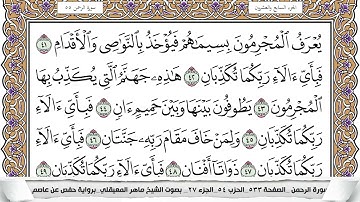 الجزء السابع والعشرون
سورة الرحمن ٥٥
يُعْرَفُ ٱلْمُجْرِمُونَ بِسِيمَٰهُمْ فَيُؤْخَذُ بِٱلنَّوَٰصِى وَٱلْأَقْدَامِ ٤١
فَبِأَىِّ ءَالَآءِ رَبِّكُمَا تُكَذِّبَانِ ٤٢ هَٰذِهِۦ جَهَنَّمُ ٱلَّتِى يُكَذِّبُ بِهَا
ٱلْمُجْرِمُونَ ٤٣ يَطُوفُونَ بَيْنَهَا وَبَيْنَ حَمِيمٍ ءَانٍ ٤٤ فَبِأَىِّ ءَالَآءِ
رَبِّكُمَا تُكَذِّبَانِ ٤٥ وَلِمَنْ خَافَ مَقَامَ رَبِّهِۦ جَنَّتَانِ ٤٦ فَبِأَىِّ ءَالَآءِ
رَبِّكُمَا تُكَذِّبَانِ ٤٧ ذَوَاتَآ أَفْنَانٍ ٤٨ فَبِأَىِّ ءَالَآءِ رَبِّكُمَا تُكَذِّبَانِ ٤٩
سورة الرحمن _ الصفحة ٥٣٣_ الحزب ٥٤_ الجزء ٢٧_ بصوت الشيخ ماهر المعيقلي_ برواية حفص عن عاصم